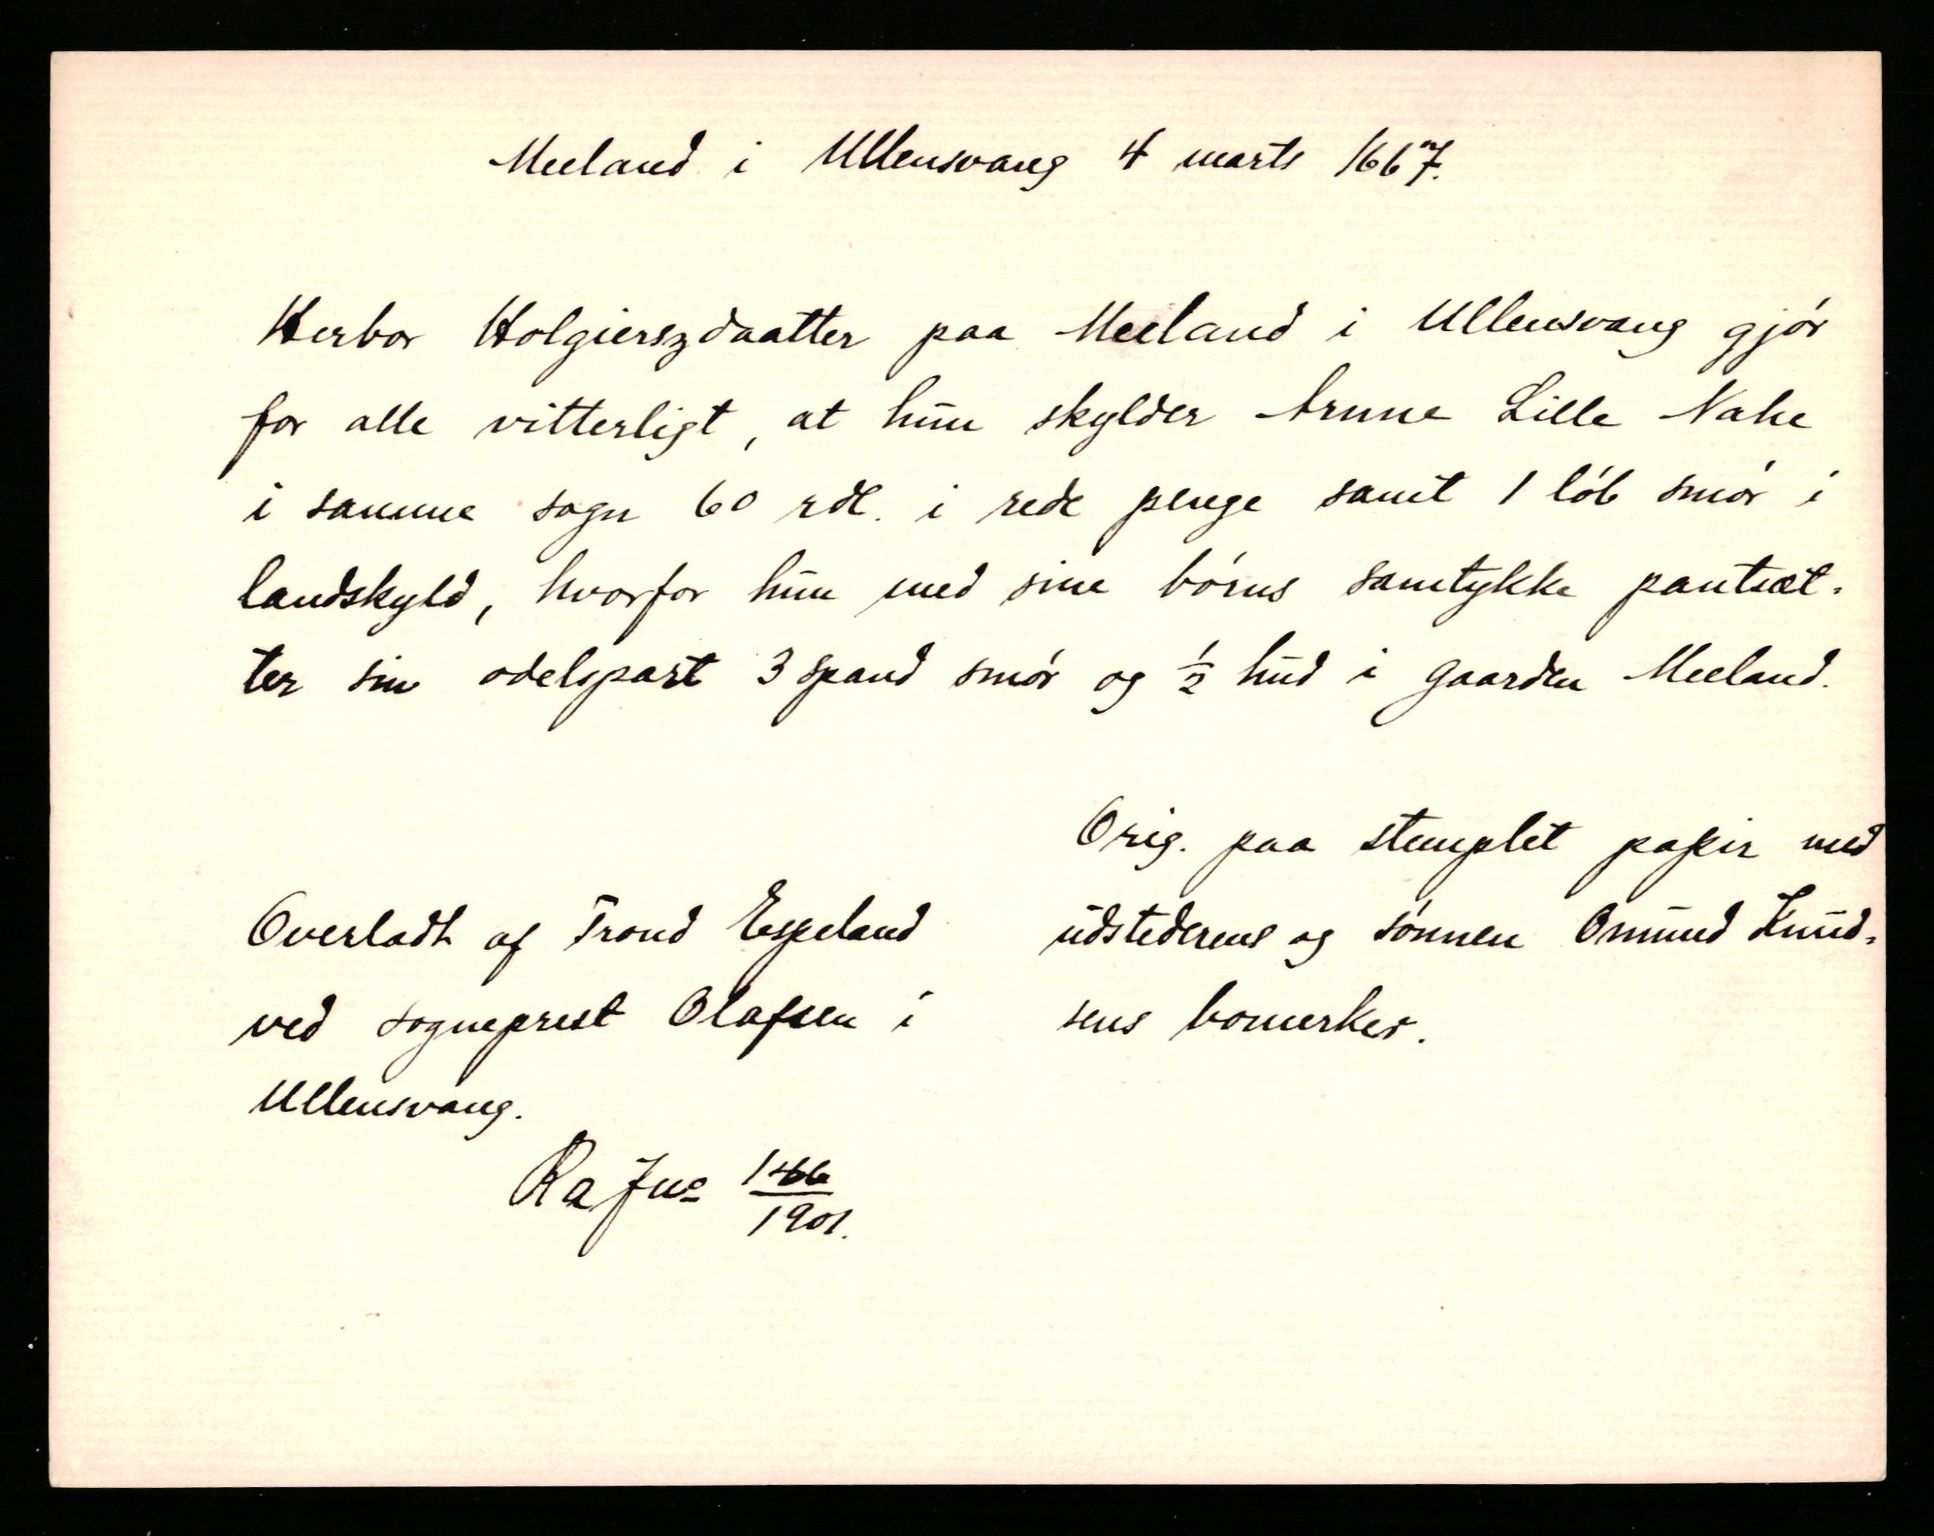 Meeland i Ullensvang 4 marts 1667.
Herbor Holgierszdaatter paa Meeland i Ullensvang gjør
for alle vitterligt, at hun skylder Arnne Lille Nahe
i samme sogn 60 rdl. i rede penge samt 1 løb smør i
landskyld, hvorfor hun med sine børns samtykke pantsæt-
ter sin odelspart 3 spand smør og ½ hud i gaarden Meeland.
Orig. paa stemplet papir med
udstederens og sønnen Omund Knud-
sens bomerker.
Overladt af Trond Espeland
ved sogneprest Olafsen i
Ullensvang.
Ra Jno 166/1901.